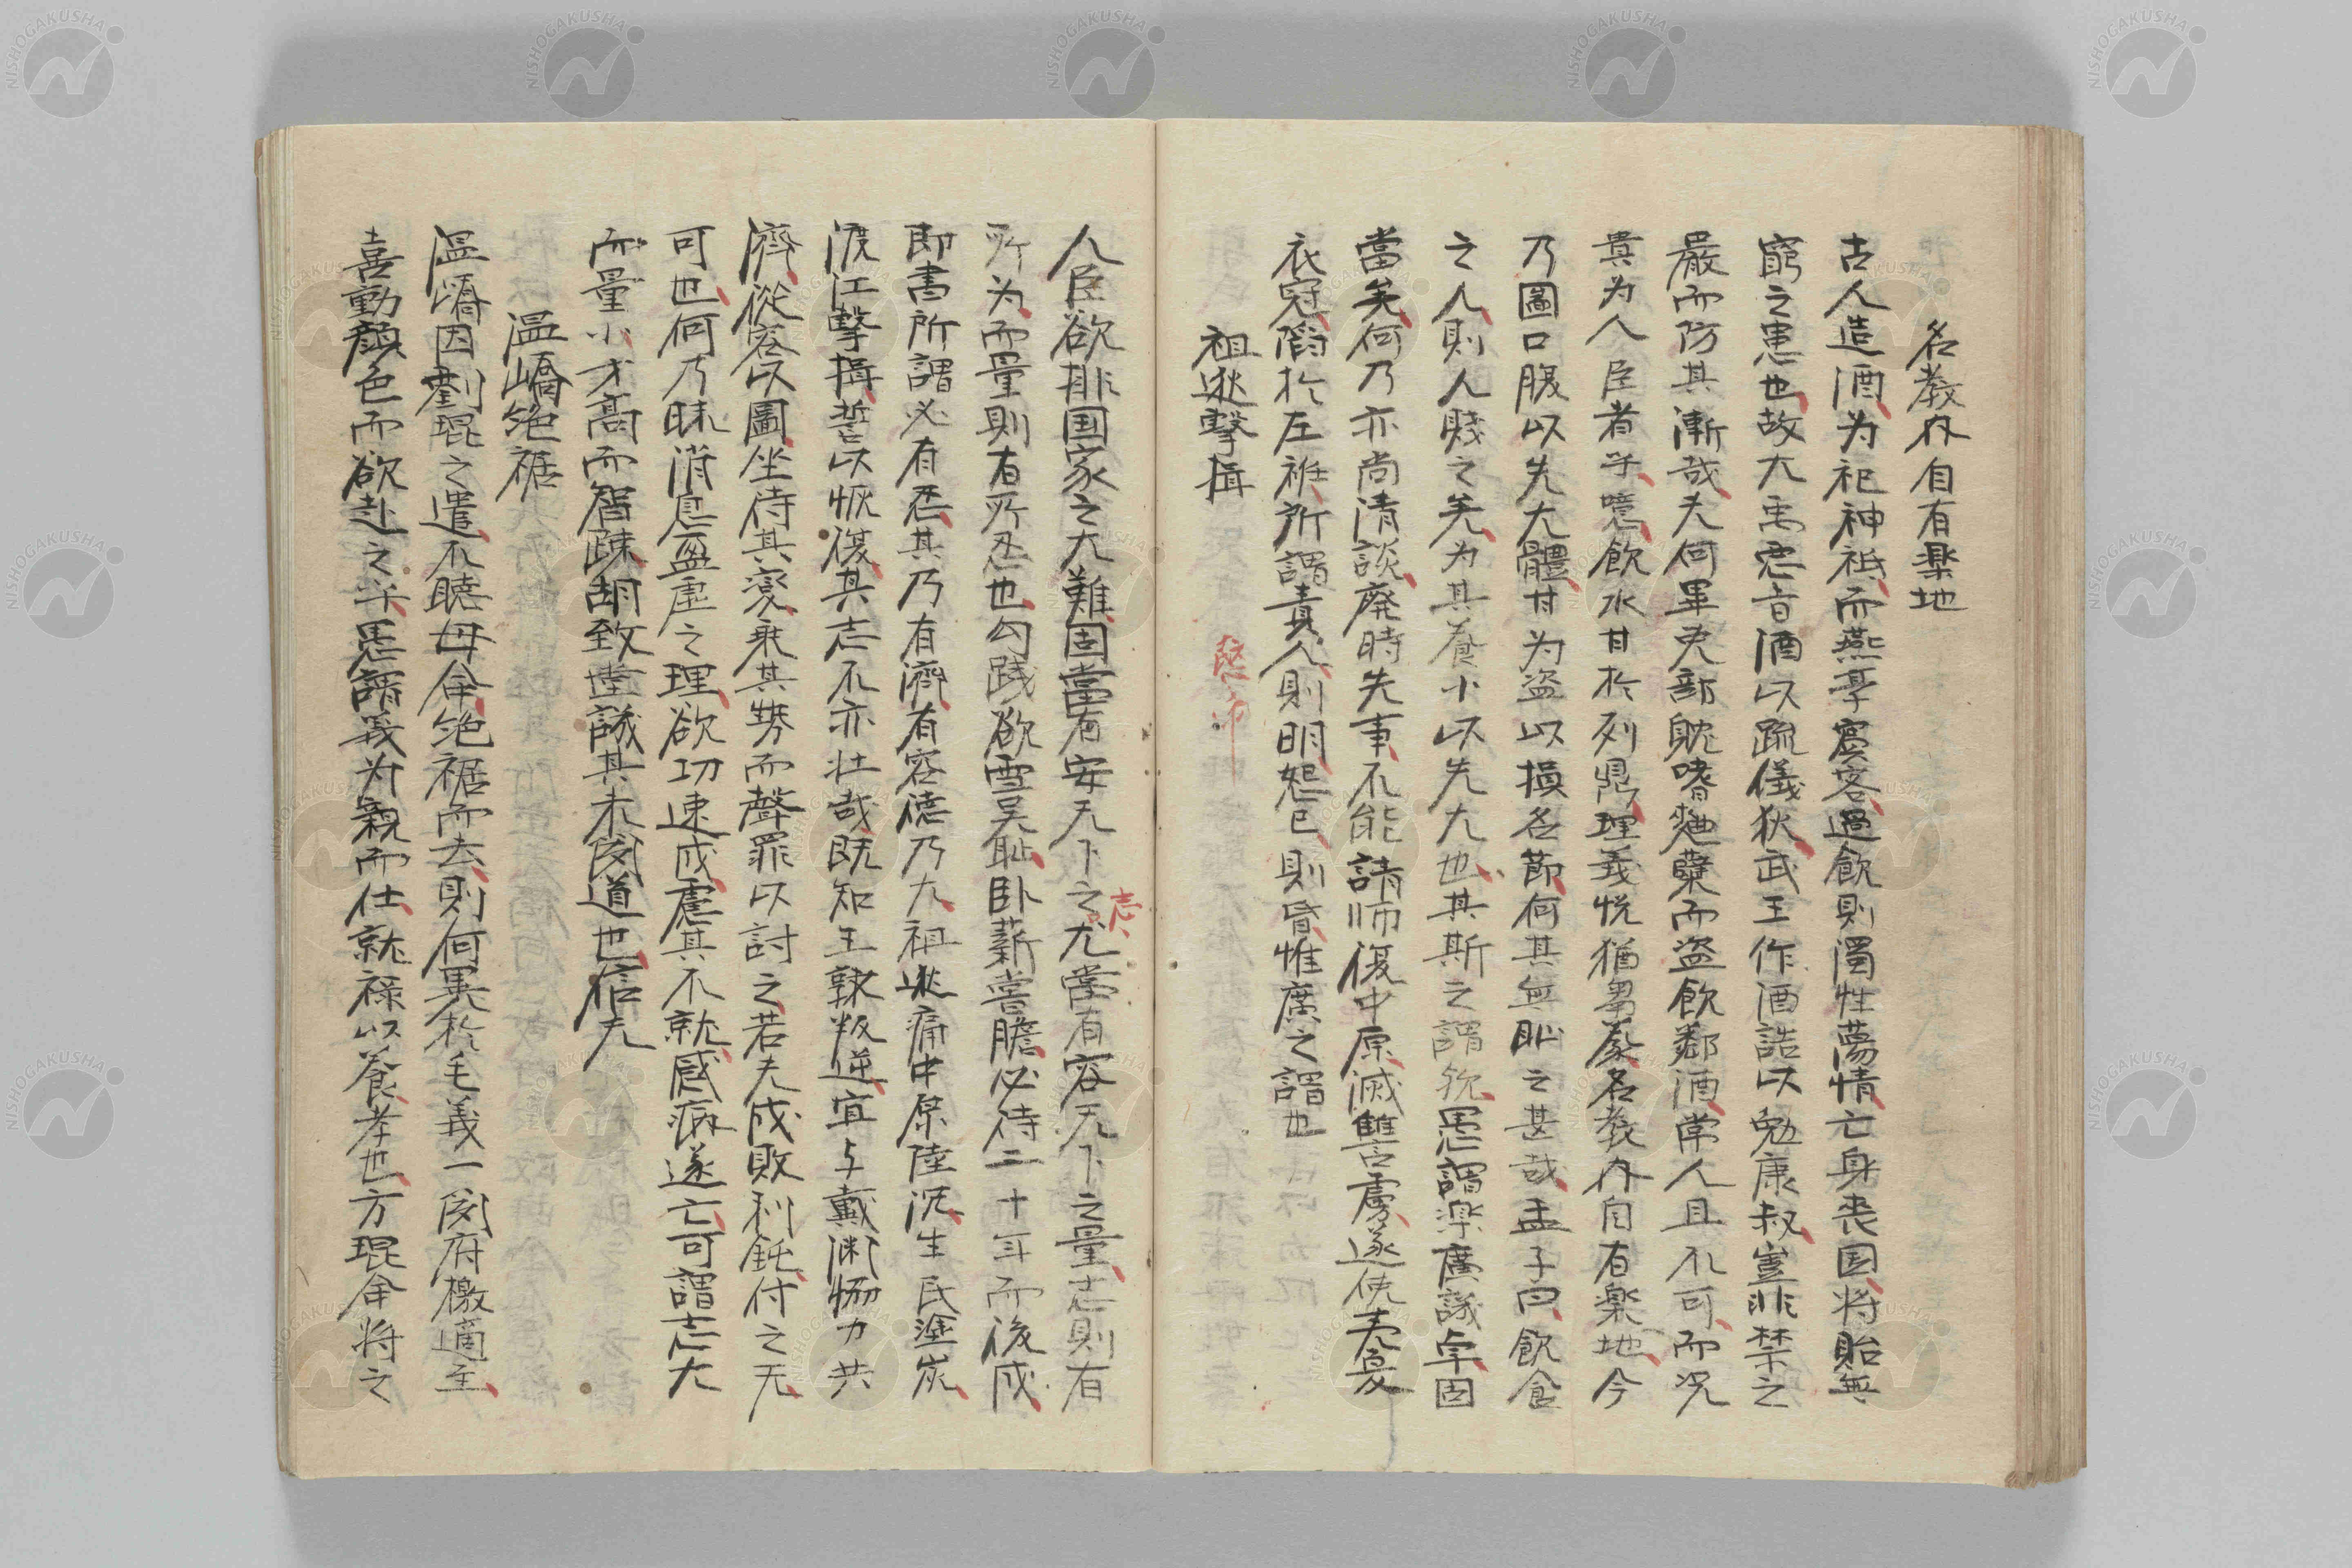 名教内自有楽地
古人造酒为祀神祗而燕享賓客過飲則濁性蕩情亡身丧国将貽無
窮之患也故大禹悪旨酒以疏儀狄武王作酒誥以勉康叔豈非禁之
嚴而防其漸哉夫何畢吏部躭嗜麹蘖而盗飲鄰酒常人且不可而况
貴为人臣者乎噫飲水甘於列鼎理義悦猶芻豢名教内自有楽地今
乃圖口腹以先大體甘为盗以損名節何其無耻之甚哉孟子曰飲食
之人則人賤之矣为其養小以失大也其斯之謂欤愚謂楽廣議卓固
當矣何乃亦尚清談廃時失事不能請师復中原滅讐虜遂使夷
衣冠陷於左衽所謂責人則明恕己則昏惟廣之謂也
祖逖擊楫
人臣欲排国家之大難固當有安天下之志尤當有容天下之量志則有
所为而量則有所忍也勾践欲雪吴耻卧薪嘗膽必待二十年而後成
即書所謂必有忍其乃有濟有容德乃大祖逖痛中原陸沉生民塗炭
渡江擊楫誓以恢復其志不亦壮哉既知王敦叛逆宜与戴渊恊力共
濟從容以圖坐待其衰乘其弊而聲罪以討之若夫成敗利鈍付之无
可也何乃昧消息盈虚之理欲功速成慮其不就感病遂亡可謂志大
而量小才高而智疎胡致堂議其未闻道也信夫
温嶠絶裾
温嶠因劉琨之遣不聽母命絶裾而去則何異於毛義一闻府檄適至
喜動顔色而欲赴之乎愚謂義为親而仕就禄以養孝也方琨命将之